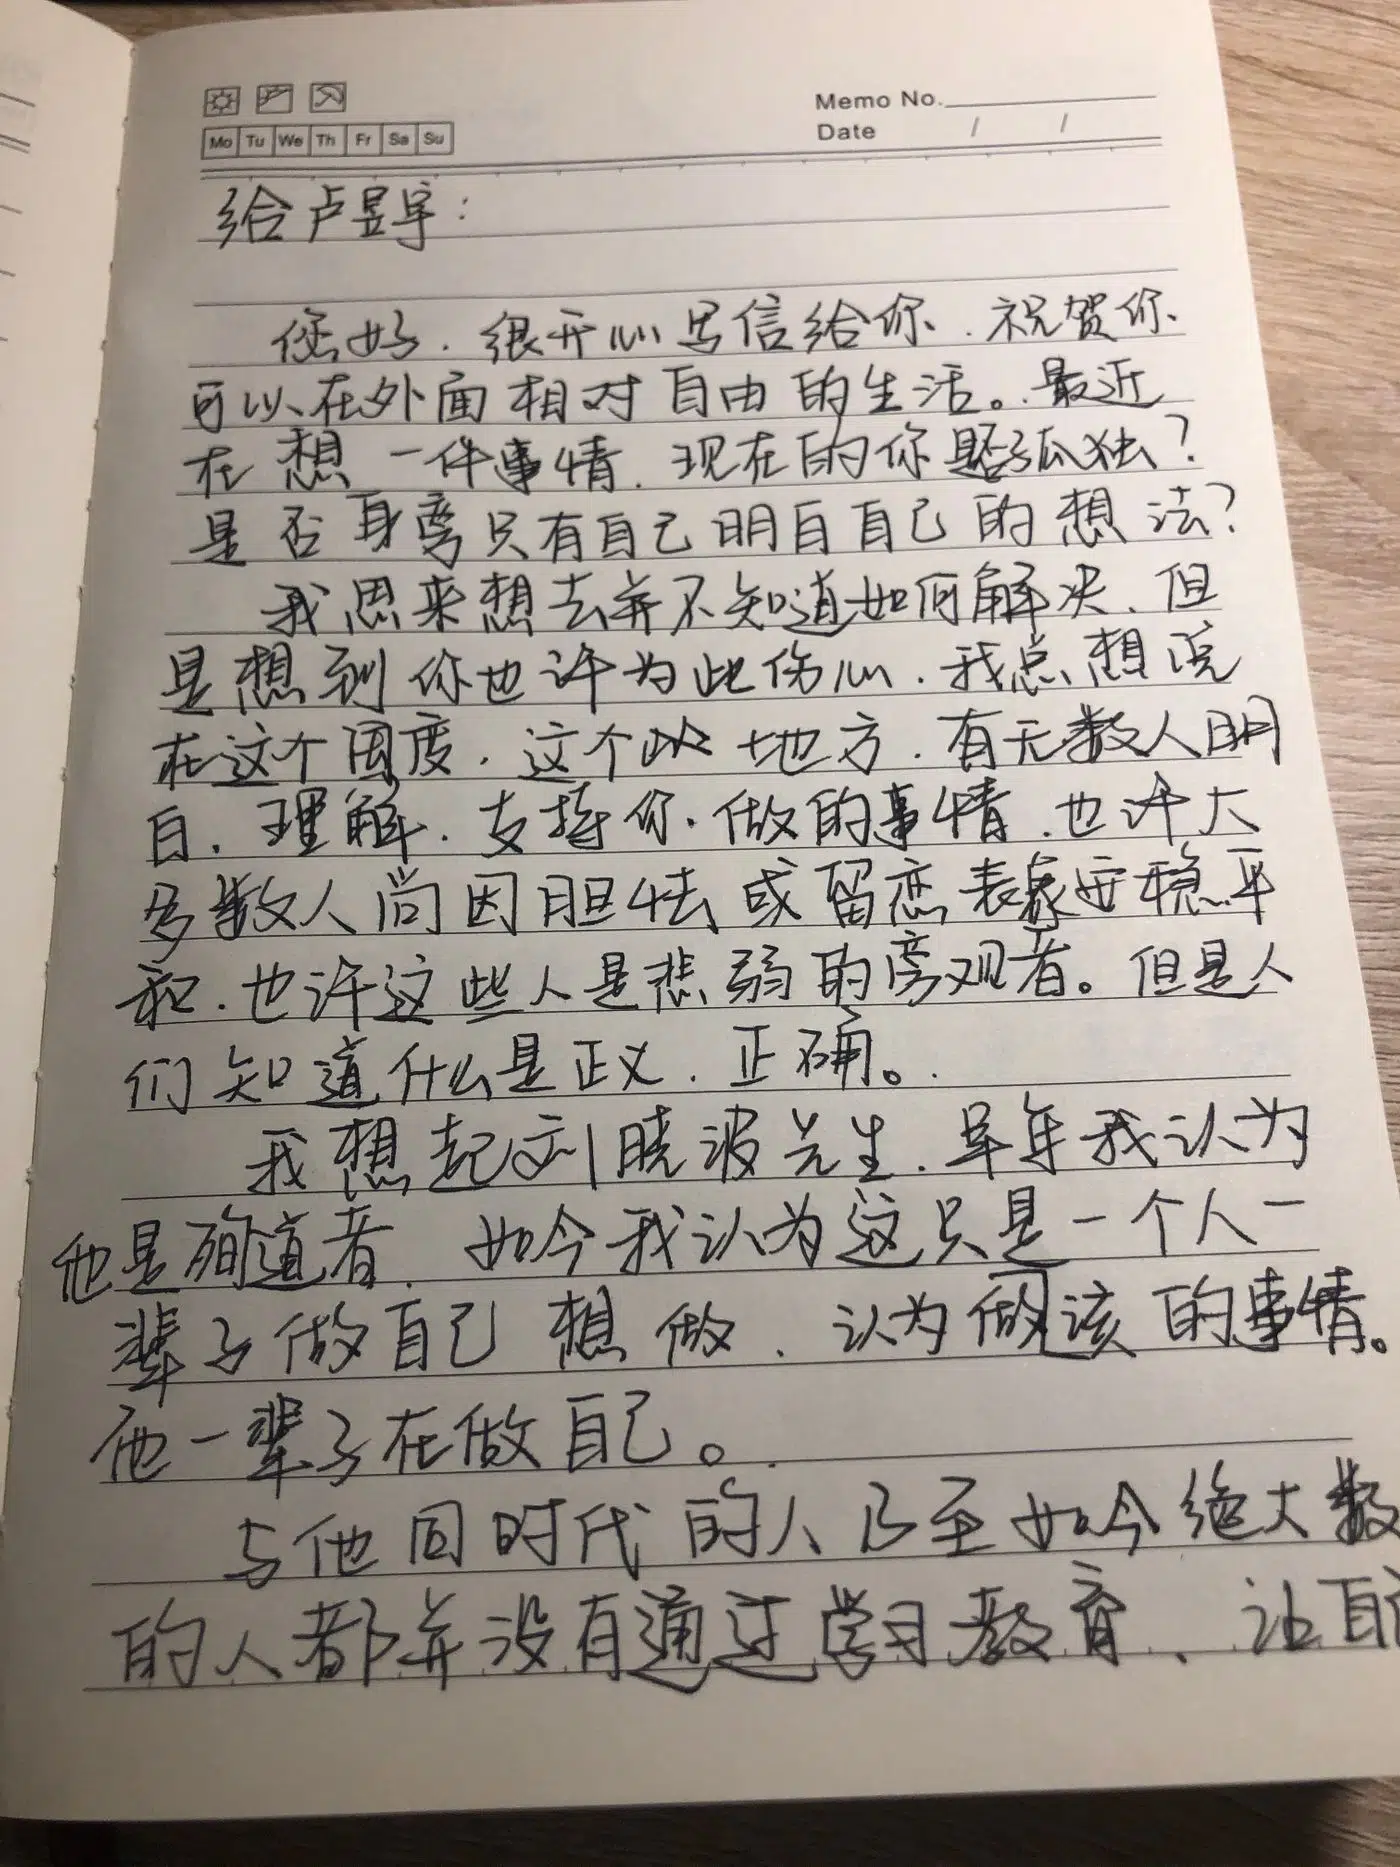 Memo No.
Mo Tu We Th Fr Sa Su
Date / /
给卢昱宇：
您好，很开心写信给你，祝贺你
可以在外面相对自由的生活。最近
在想一件事情，现在的你是否孤独？
是否身旁只有自己明白自己的想法？
我思来想去并不知道如何解决，但
是想到你也许为此伤心，我总想说
在这个国度，这个地方，有无数人明
白，理解，支持你做的事情，也许大
多数人尚因胆怯或留恋表象安稳平
和，也许这些人是悲弱的旁观者。但是人
们知道什么是正义，正确。
我想起刘晓波先生，早年我认为
他是殉道者，如今我认为这只是一个人一
辈子做自己想做，认为做该的事情。
他一辈子在做自己。
与他同时代的人乃至如今绝大数
的人都并没有通过学习教育，让